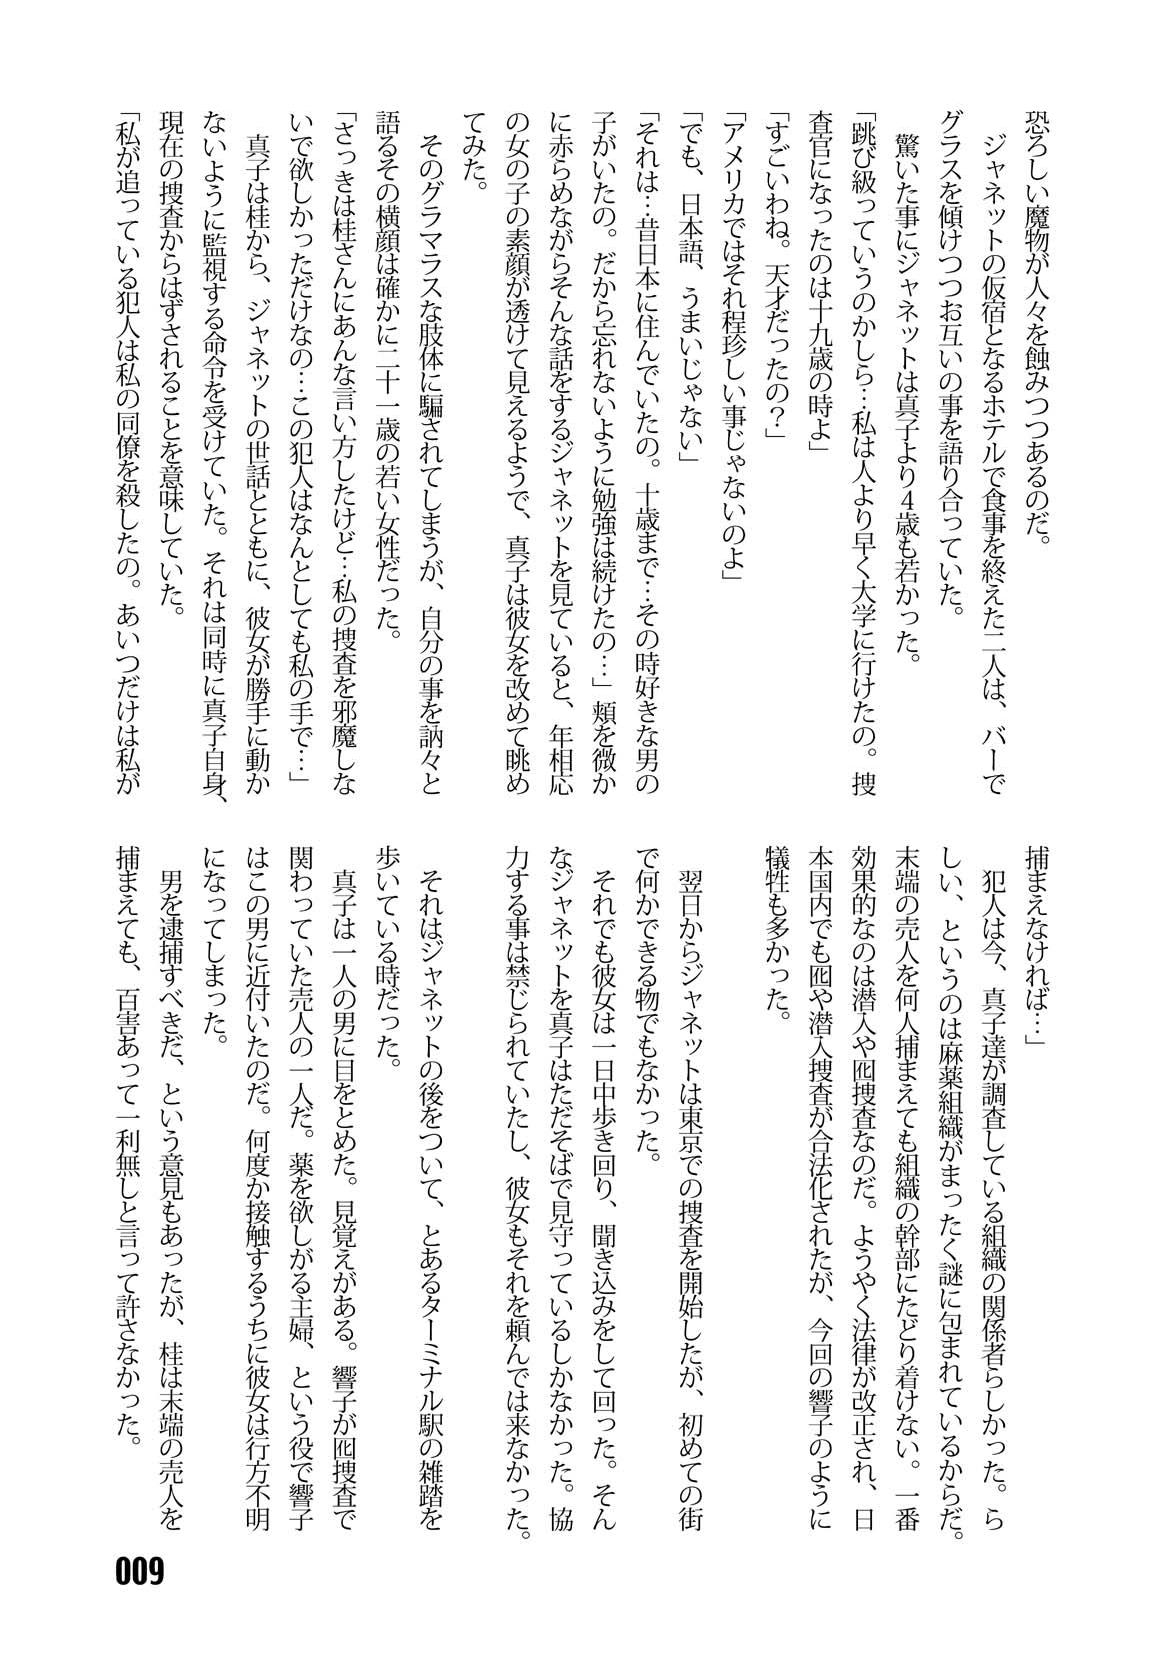 恐ろしい魔物が人々を蝕みつつあるのだ。
　ジャネットの仮宿となるホテルで食事を終えた二人は、バーで
グラスを傾けつつお互いの事を語り合っていた。
　驚いた事にジャネットは真子より４歳も若かった。
「跳び級っていうのかしら…私は人より早く大学に行けたの。捜
査官になったのは十九歳の時よ」
「すごいわね。天才だったの？」
「アメリカではそれ程珍しい事じゃないのよ」
「でも、日本語、うまいじゃない」
「それは…昔日本に住んでいたの。十歳まで…その時好きな男の
子がいたの。だから忘れないように勉強は続けたの…」頬を微か
に赤らめながらそんな話をするジャネットを見ていると、年相応
の女の子の素顔が透けて見えるようで、真子は彼女を改めて眺め
てみた。
　そのグラマラスな肢体に騙されてしまうが、自分の事を訥々と
語るその横顔は確かに二十一歳の若い女性だった。
「さっきは桂さんにあんな言い方したけど…私の捜査を邪魔しな
いで欲しかっただけなの…この犯人はなんとしても私の手で…」
　真子は桂から、ジャネットの世話とともに、彼女が勝手に動か
ないように監視する命令を受けていた。それは同時に真子自身、
現在の捜査からはずされることを意味していた。
「私が追っている犯人は私の同僚を殺したの。あいつだけは私が
捕まえなければ…」
　犯人は今、真子達が調査している組織の関係者らしかった。ら
しい、というのは麻薬組織がまったく謎に包まれているからだ。
末端の売人を何人捕まえても組織の幹部にたどり着けない。一番
効果的なのは潜入や囮捜査なのだ。ようやく法律が改正され、日
本国内でも囮や潜入捜査が合法化されたが、今回の響子のように
犠牲も多かった。
　翌日からジャネットは東京での捜査を開始したが、初めての街
で何かできる物でもなかった。
　それでも彼女は一日中歩き回り、聞き込みをして回った。そん
なジャネットを真子はただそばで見守っているしかなかった。協
力する事は禁じられていたし、彼女もそれを頼んでは来なかった。
　それはジャネットの後をついて、とあるターミナル駅の雑踏を
歩いている時だった。
　真子は一人の男に目をとめた。見覚えがある。響子が囮捜査で
関わっていた売人の一人だ。薬を欲しがる主婦、という役で響子
はこの男に近付いたのだ。何度か接触するうちに彼女は行方不明
になってしまった。
　男を逮捕すべきだ、という意見もあったが、桂は末端の売人を
捕まえても、百害あって一利無しと言って許さなかった。
009